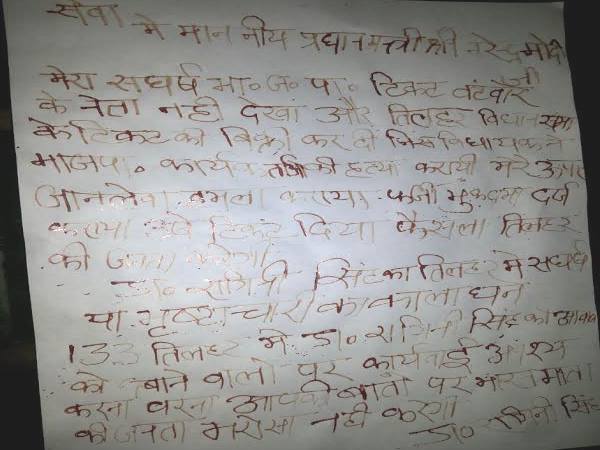 सेवा मे माननीय प्रधानमन्त्री श्री नरेन्द्र मोदी
जी
मेरा संघर्ष भा॰ज॰पा॰ टिकट बंटवारे
के नेता नही देखा और तिलहर विधान सभा
के टिकट की बिक्री कर दी जिस विधायक ने
भाजपा॰ कार्यकर्ता की हत्या करायी मेरे ऊपर
जानलेवा हमला कराया फर्जी मुकदमा दर्ज
कराया उसे टिकट दिया फैसला तिलहर
की जनता करेगी
डा॰ रागिनी सिंह का तिलहर मे संघर्ष
या भृष्टाचारी का काला धन
133 तिलहर मे डा॰ रागिनी सिंह की आवाज
को दबाने वालो पर कार्यवाई अवश्य
करना वरना आपकी बातो पर भारत माता
की जनता भरोसा नही करेगी
डा॰ रागिनी सिंह